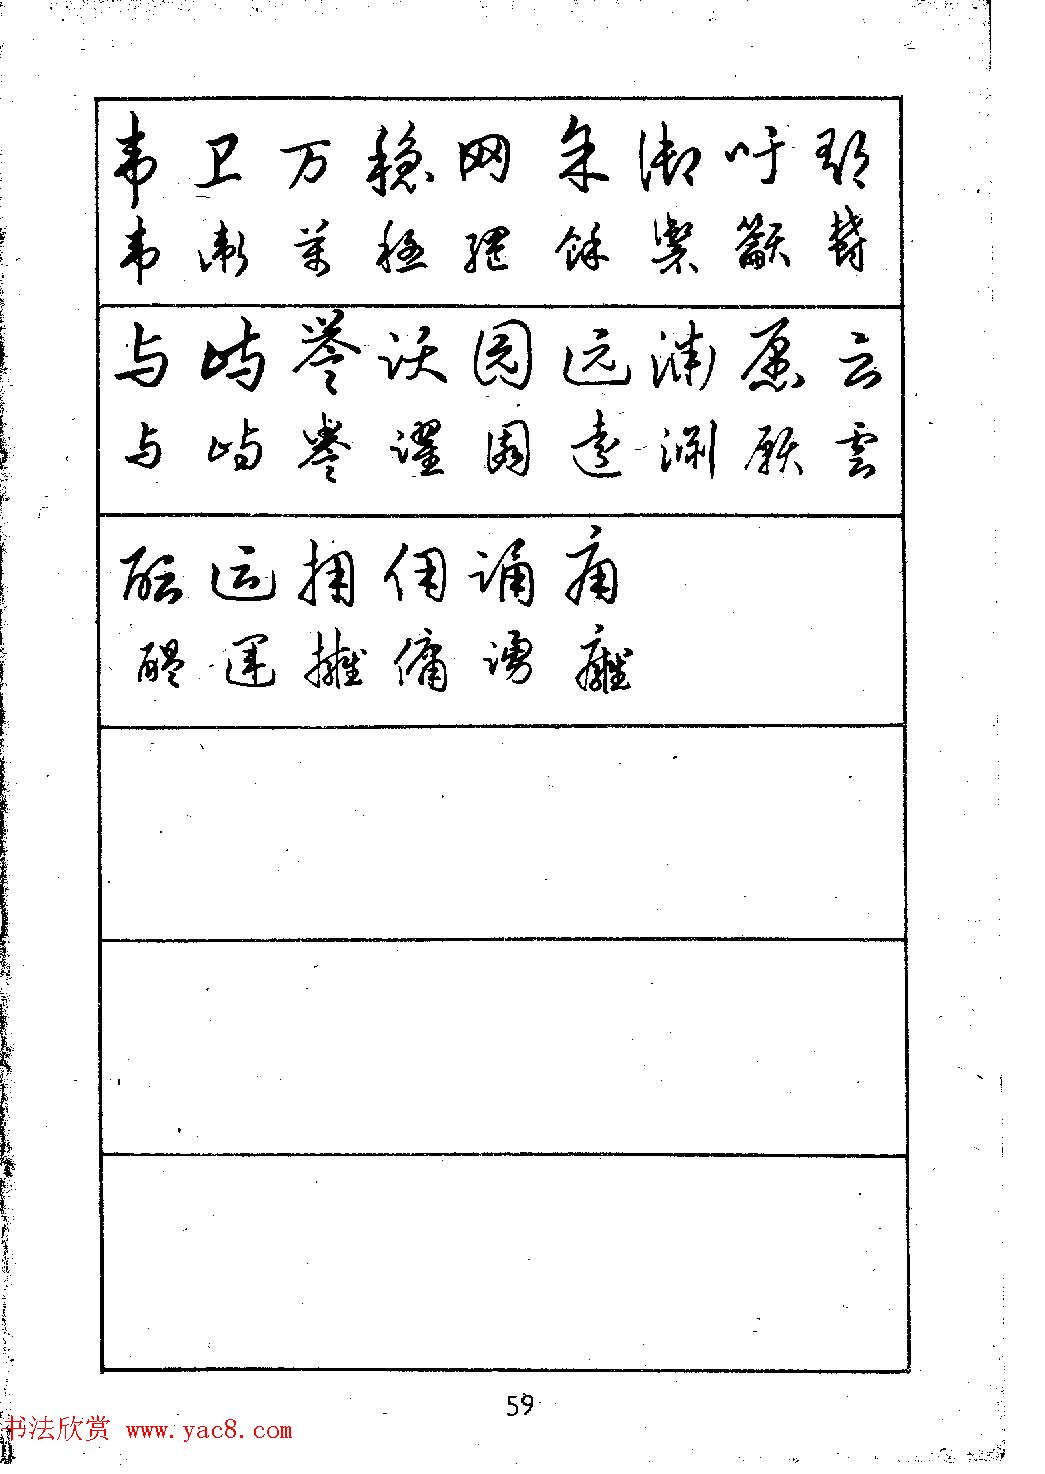 韦 卫 万 稳 网 余 御 吁 郁
韦 衛 萬 穩 網 餘 禦 籲 鬱
与 屿 誉 跃 园 远 渊 愿 云
与 嶼 譽 躍 園 遠 淵 願 雲
酝 运 拥 佣 诵 痈
醞 運 擁 傭 湧 癰
59
书法欣赏 www.yac8.com